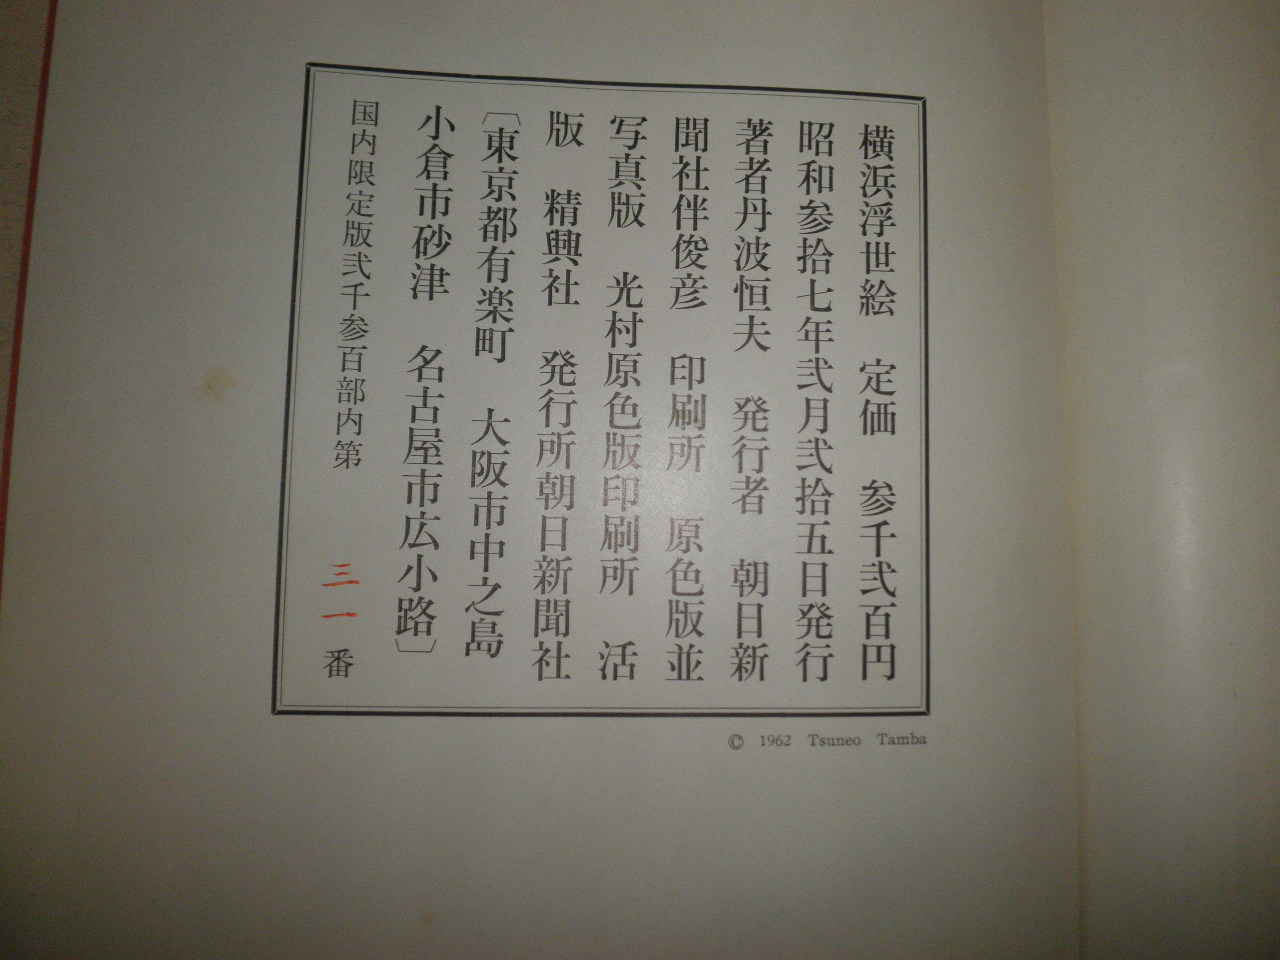 横浜浮世絵　定価　参千弐百円
昭和参拾七年弐月弐拾五日発行
著者丹波恒夫　発行者　朝日新
聞社伴俊彦　印刷所　原色版並
写真版　光村原色版印刷所　活
版　精興社　発行所朝日新聞社
〔東京都有楽町　大阪市中之島
小倉市砂津　名古屋市広小路〕
国内限定版弐千参百部内第　三一番
© 1962 Tsuneo Tamba